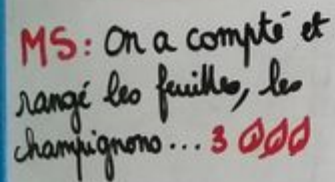 MS: On a compté et
rangé les feuilles, les
champignons... 3